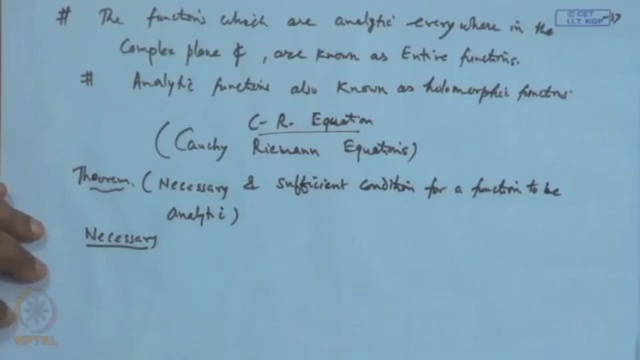 # The functions which are analytic everywhere in the
Complex plane ₵, are known as Entire functions.
# Analytic functions also known as holomorphic functions.
C-R. Equation
(Cauchy Riemann Equations)
Theorem. (Necessary & sufficient condition for a function to be
analytic)
Necessary
© CET
I.I.T. KGP
NPTEL